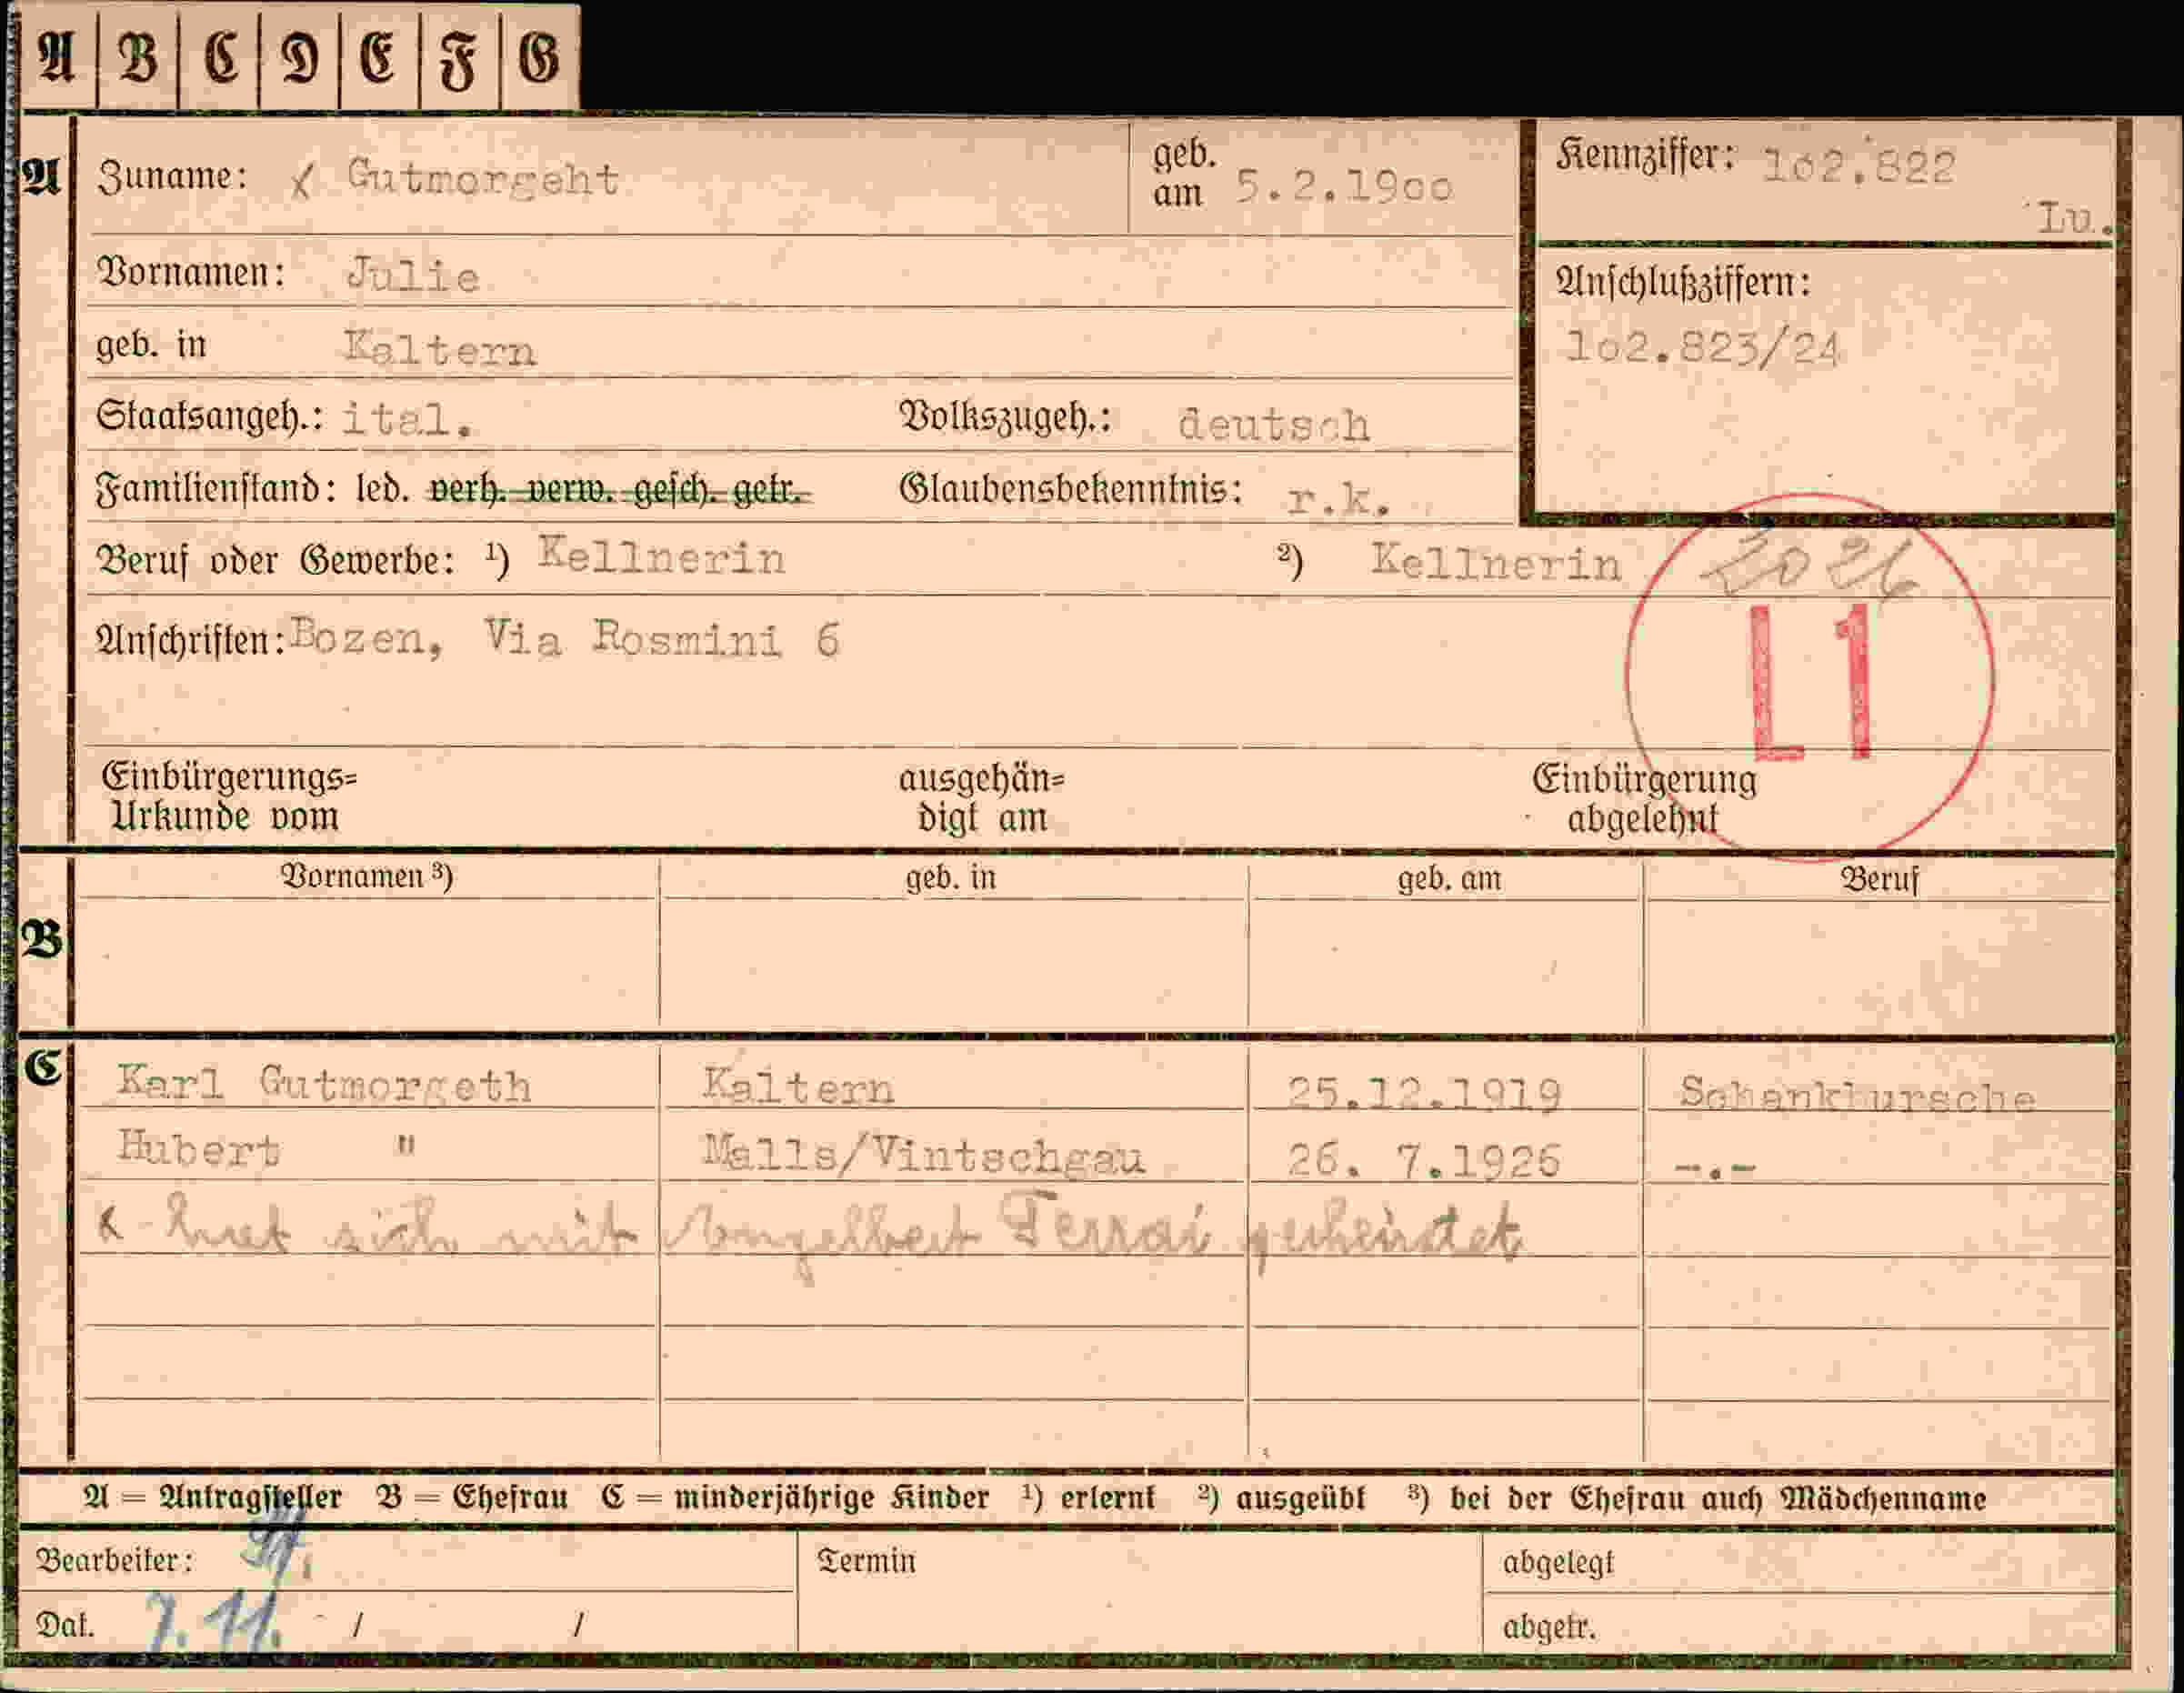 A B C D E F G
A Zuname: x Gutmorgeht geb. am 5.2.1900 Kennziffer: 1o2.822
Lu.
Vornamen: Julie
Anschlußziffern:
geb. in Kaltern 1o2.823/24
Staatsangeh.: ital. Volkszugeh.: deutsch
Familienstand: led. verh. verw. gesch. getr. Glaubensbekenntnis: r.k.
Beruf oder Gewerbe: ¹) Kellnerin ²) Kellnerin
L1
Anschriften: Bozen, Via Rosmini 6
Einbürgerungs= ausgehän= Einbürgerung
Urkunde vom digt am abgelehnt
Vornamen ³) geb. in geb. am Beruf
B
C Karl Gutmorgeth Kaltern 25.12.1919 Schankbursche
Hubert " Malls/Vintschgau 26. 7.1926 -.-
x hat sich mit Engelbert geheiratet
A = Antragsteller B = Ehefrau C = minderjährige Kinder ¹) erlernt ²) ausgeübt ³) bei der Ehefrau auch Mädchenname
Bearbeiter: Termin abgelegt
Dat. 7.11. / / abgetr.